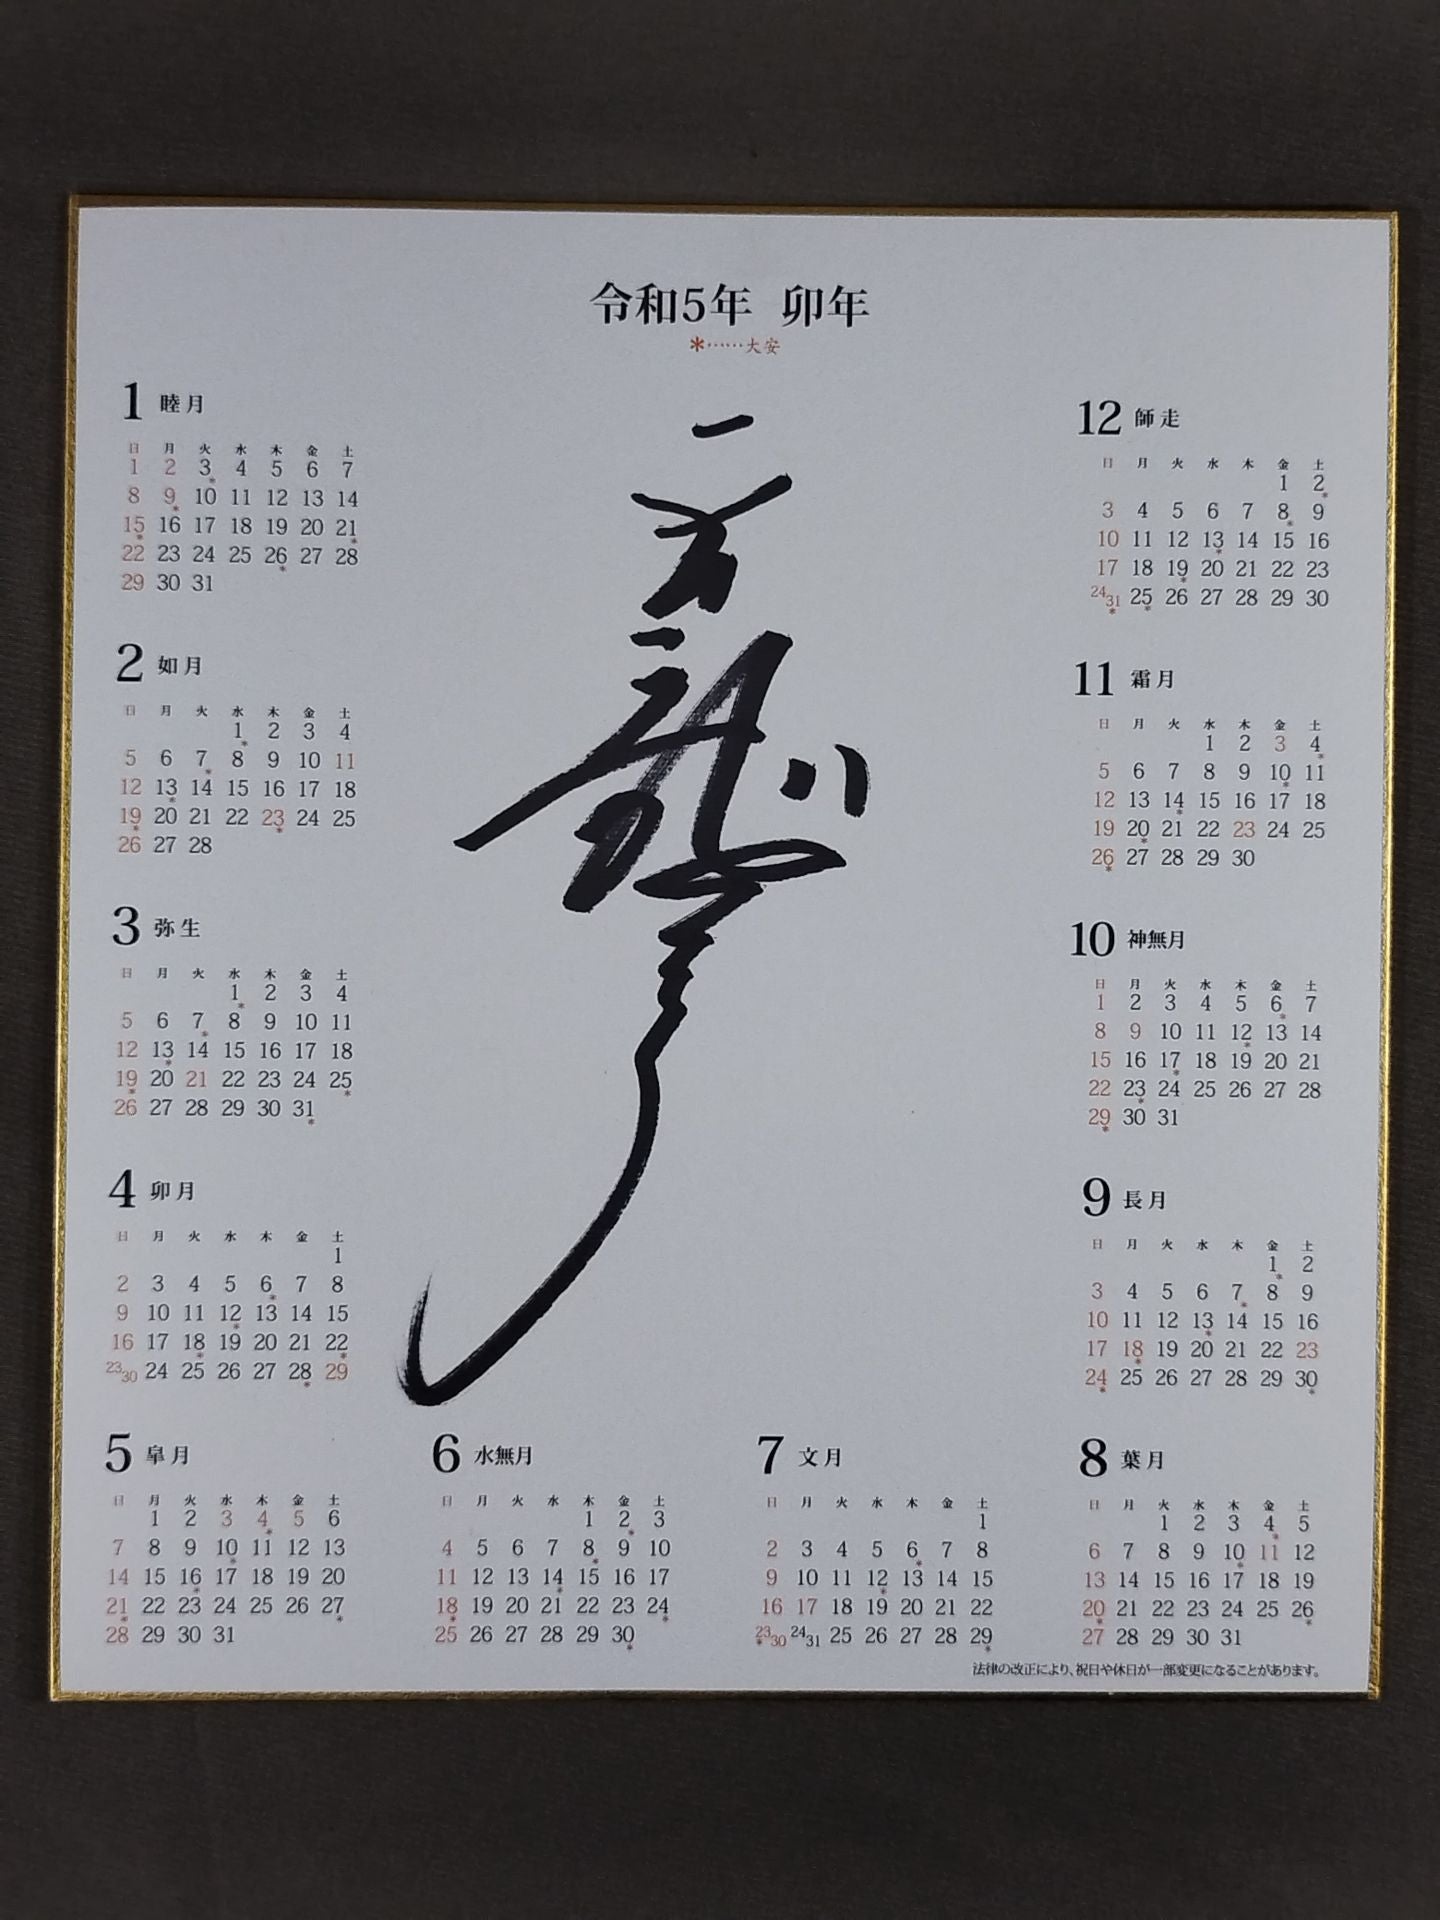 令和5年 卯年
*……大安
1 睦月
日 月 火 水 木 金 土
1 2 3* 4 5 6 7
8 9* 10 11 12 13 14
15* 16 17 18 19 20 21*
22 23 24 25 26* 27 28
29 30 31
2 如月
日 月 火 水 木 金 土
1* 2 3 4
5 6 7* 8 9 10 11
12 13* 14 15 16 17 18
19* 20 21 22 23* 24 25
26 27 28
3 弥生
日 月 火 水 木 金 土
1* 2 3 4
5 6 7* 8 9 10 11
12 13* 14 15 16 17 18
19* 20 21 22 23 24 25*
26 27 28 29 30 31*
4 卯月
日 月 火 水 木 金 土
1
2 3 4 5 6* 7 8
9 10 11 12* 13 14 15
16 17 18* 19 20 21 22*
23 30 24 25 26 27 28* 29
5 皐月
日 月 火 水 木 金 土
1 2 3 4* 5 6
7 8 9 10* 11 12 13
14 15 16* 17 18 19 20
21* 22 23 24 25 26 27*
28 29 30 31
6 水無月
日 月 火 水 木 金 土
1 2* 3
4 5 6 7 8* 9 10
11 12 13 14* 15 16 17
18* 19 20 21 22 23 24*
25 26 27 28 29 30*
7 文月
日 月 火 水 木 金 土
1
2 3 4 5 6* 7 8
9 10 11 12* 13 14 15
16 17 18 19 20 21 22
23* 30 24 31 25 26 27 28 29*
8 葉月
日 月 火 水 木 金 土
1 2 3 4* 5
6 7 8 9 10* 11 12
13 14 15 16 17 18 19
20* 21 22 23 24 25 26*
27 28 29 30 31
9 長月
日 月 火 水 木 金 土
1* 2
3 4 5 6 7* 8 9
10 11 12 13* 14 15 16
17 18* 19 20 21 22 23
24* 25 26 27 28 29 30*
10 神無月
日 月 火 水 木 金 土
1 2 3 4 5 6* 7
8 9 10 11 12* 13 14
15 16 17* 18 19 20 21
22 23* 24 25 26 27 28
29* 30 31
11 霜月
日 月 火 水 木 金 土
1 2 3 4*
5 6 7 8 9 10* 11
12 13 14* 15 16 17 18
19 20* 21 22 23 24 25
26* 27 28 29 30
12 師走
日 月 火 水 木 金 土
1 2*
3 4 5 6 7 8* 9
10 11 12 13* 14 15 16
17 18 19* 20 21 22 23
24 31* 25* 26 27 28 29 30
法律の改正により、祝日や休日が一部変更になることがあります。